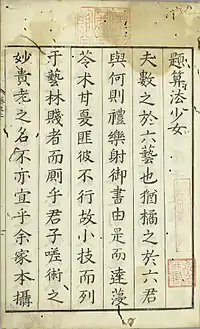 題算法少女
夫數之於六藝也猶橘之於六君
與何則禮樂射御書由是而達蓡
苓朮甘夏匪彼不行故小技而列
于藝林賤者而厠乎君子嗟術之
妙貴老之名不亦宜乎余家本攝